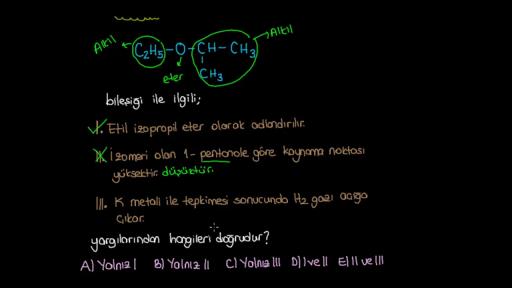 Alkil
Alkil
C2H5-O-CH-CH3
CH3
eter
bileşiği ile ilgili;
I. Etil izopropil eter olarak adlandırılır.
II. İzomeri olan 1-pentanole göre kaynama noktası
yüksektir. düşüktür.
III. K metali ile tepkimesi sonucunda H2 gazı açığa
çıkar.
yargılarından hangileri doğrudur?
A) Yalnız I B) Yalnız II C) Yalnız III D) I ve II E) II ve III